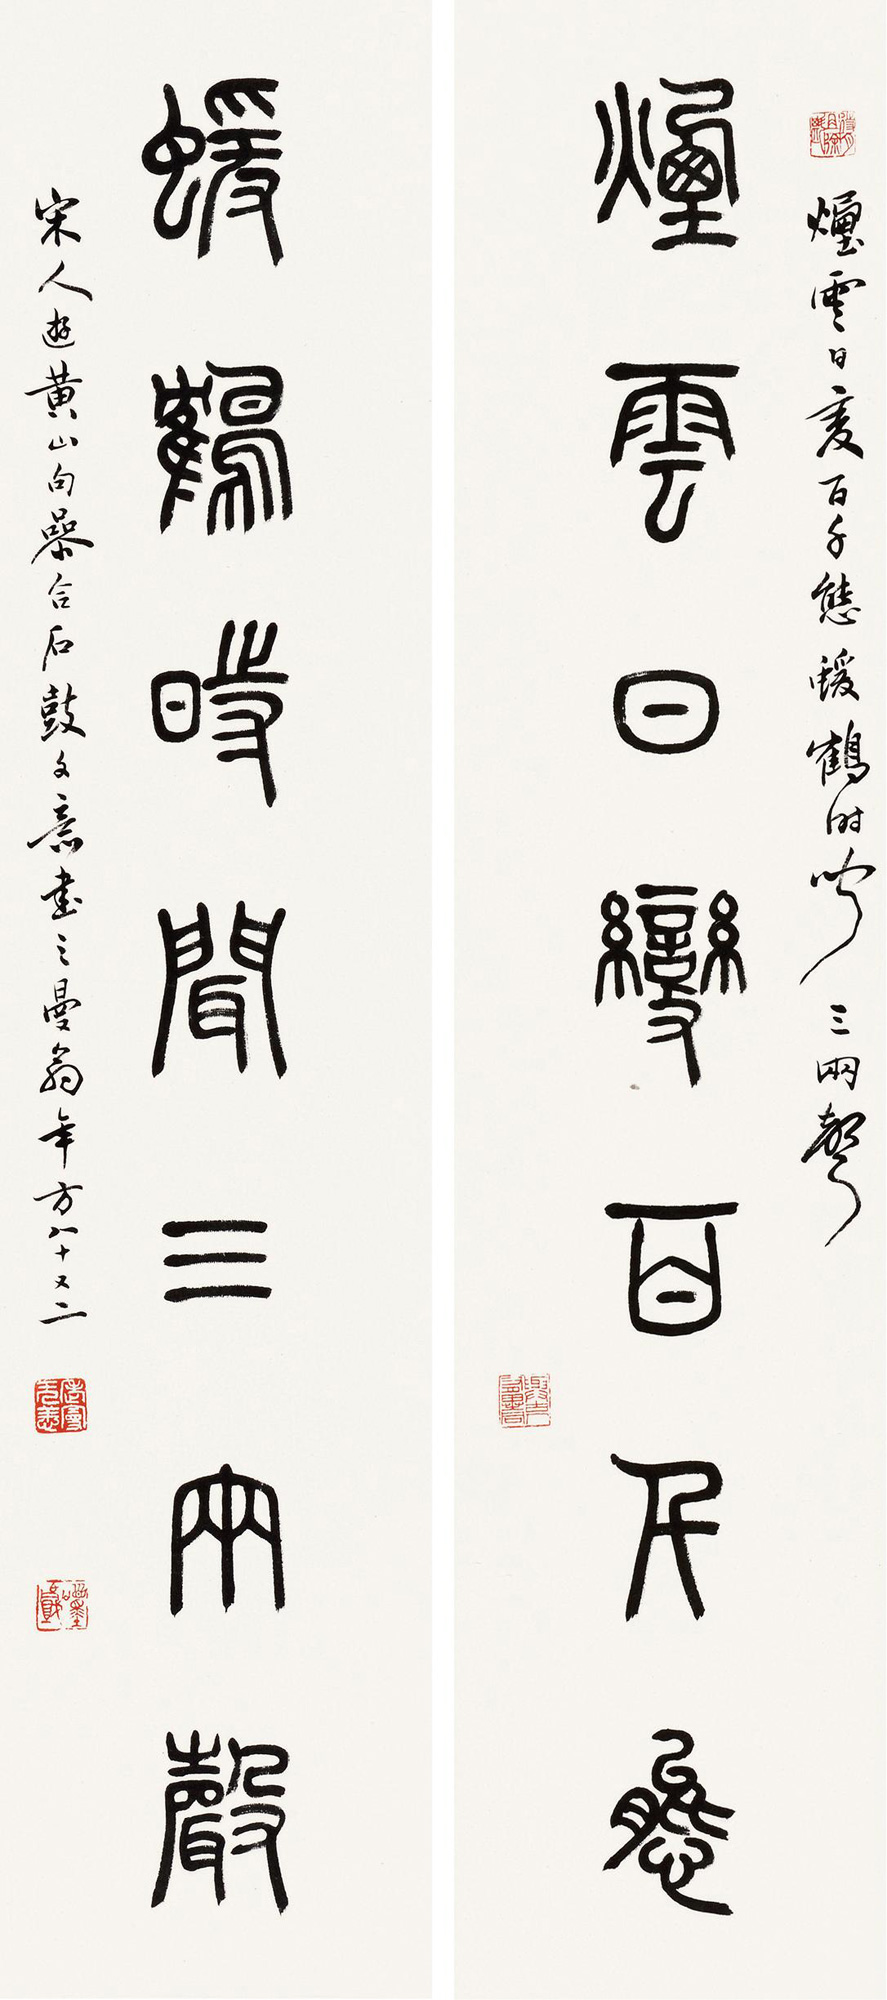 煙雲日變百千態蝯鶴時聞三兩聲
煙雲日變百千態
蝯鶴時聞三兩聲
宋人遊黃山句合石鼓文意書之曼翁年方八十又二